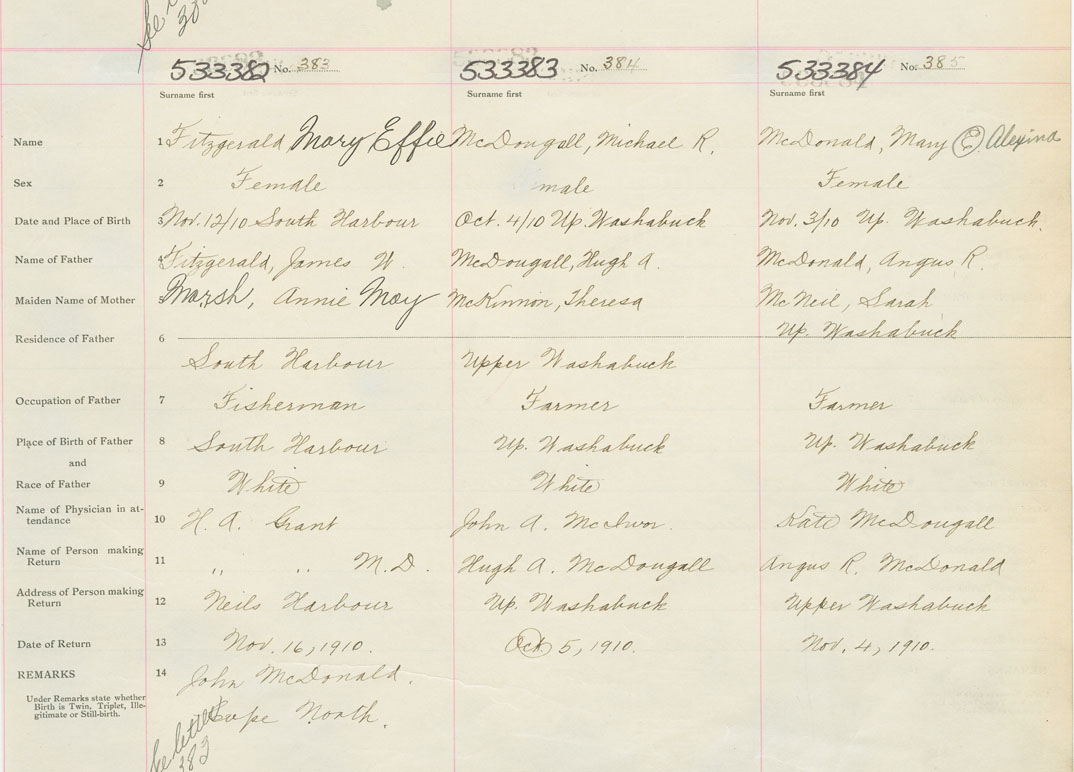 533382 No. 383 533383 No. 384 533384 No. 385
Surname first Surname first Surname first
Name 1 Fitzgerald Mary Effie McDougall, Michael R. McDonald, Mary C. Alexina
Sex 2 Female male Female
Date and Place of Birth 3 Nov. 12/10 South Harbour Oct. 4/10 Up. Washabuck Nov. 3/10 Up. Washabuck.
Name of Father 4 Fitzgerald, James W. McDougall, Hugh A. McDonald, Angus R.
Maiden Name of Mother Marsh, Annie May McKinnon, Theresa McNeil, Sarah
Up. Washabuck
Residence of Father 6
South Harbour Upper Washabuck
Occupation of Father 7 Fisherman Farmer Farmer
Place of Birth of Father 8 South Harbour Up. Washabuck Up. Washabuck
and
Race of Father 9 White White White
Name of Physician in at-
tendance 10 H. A. Grant John A. McIvor. Kate McDougall
Name of Person making
Return 11 " " M.D. Hugh A. McDougall Angus R. McDonald
Address of Person making
Return 12 Neils Harbour Up. Washabuck Upper Washabuck
Date of Return 13 Nov. 16, 1910. Oct 5, 1910. Nov. 4, 1910.
REMARKS 14 John McDonald.
Under Remarks state whether
Birth is Twin, Triplet, Ille-
gitimate or Still-birth.
Cape North.
See letter
383